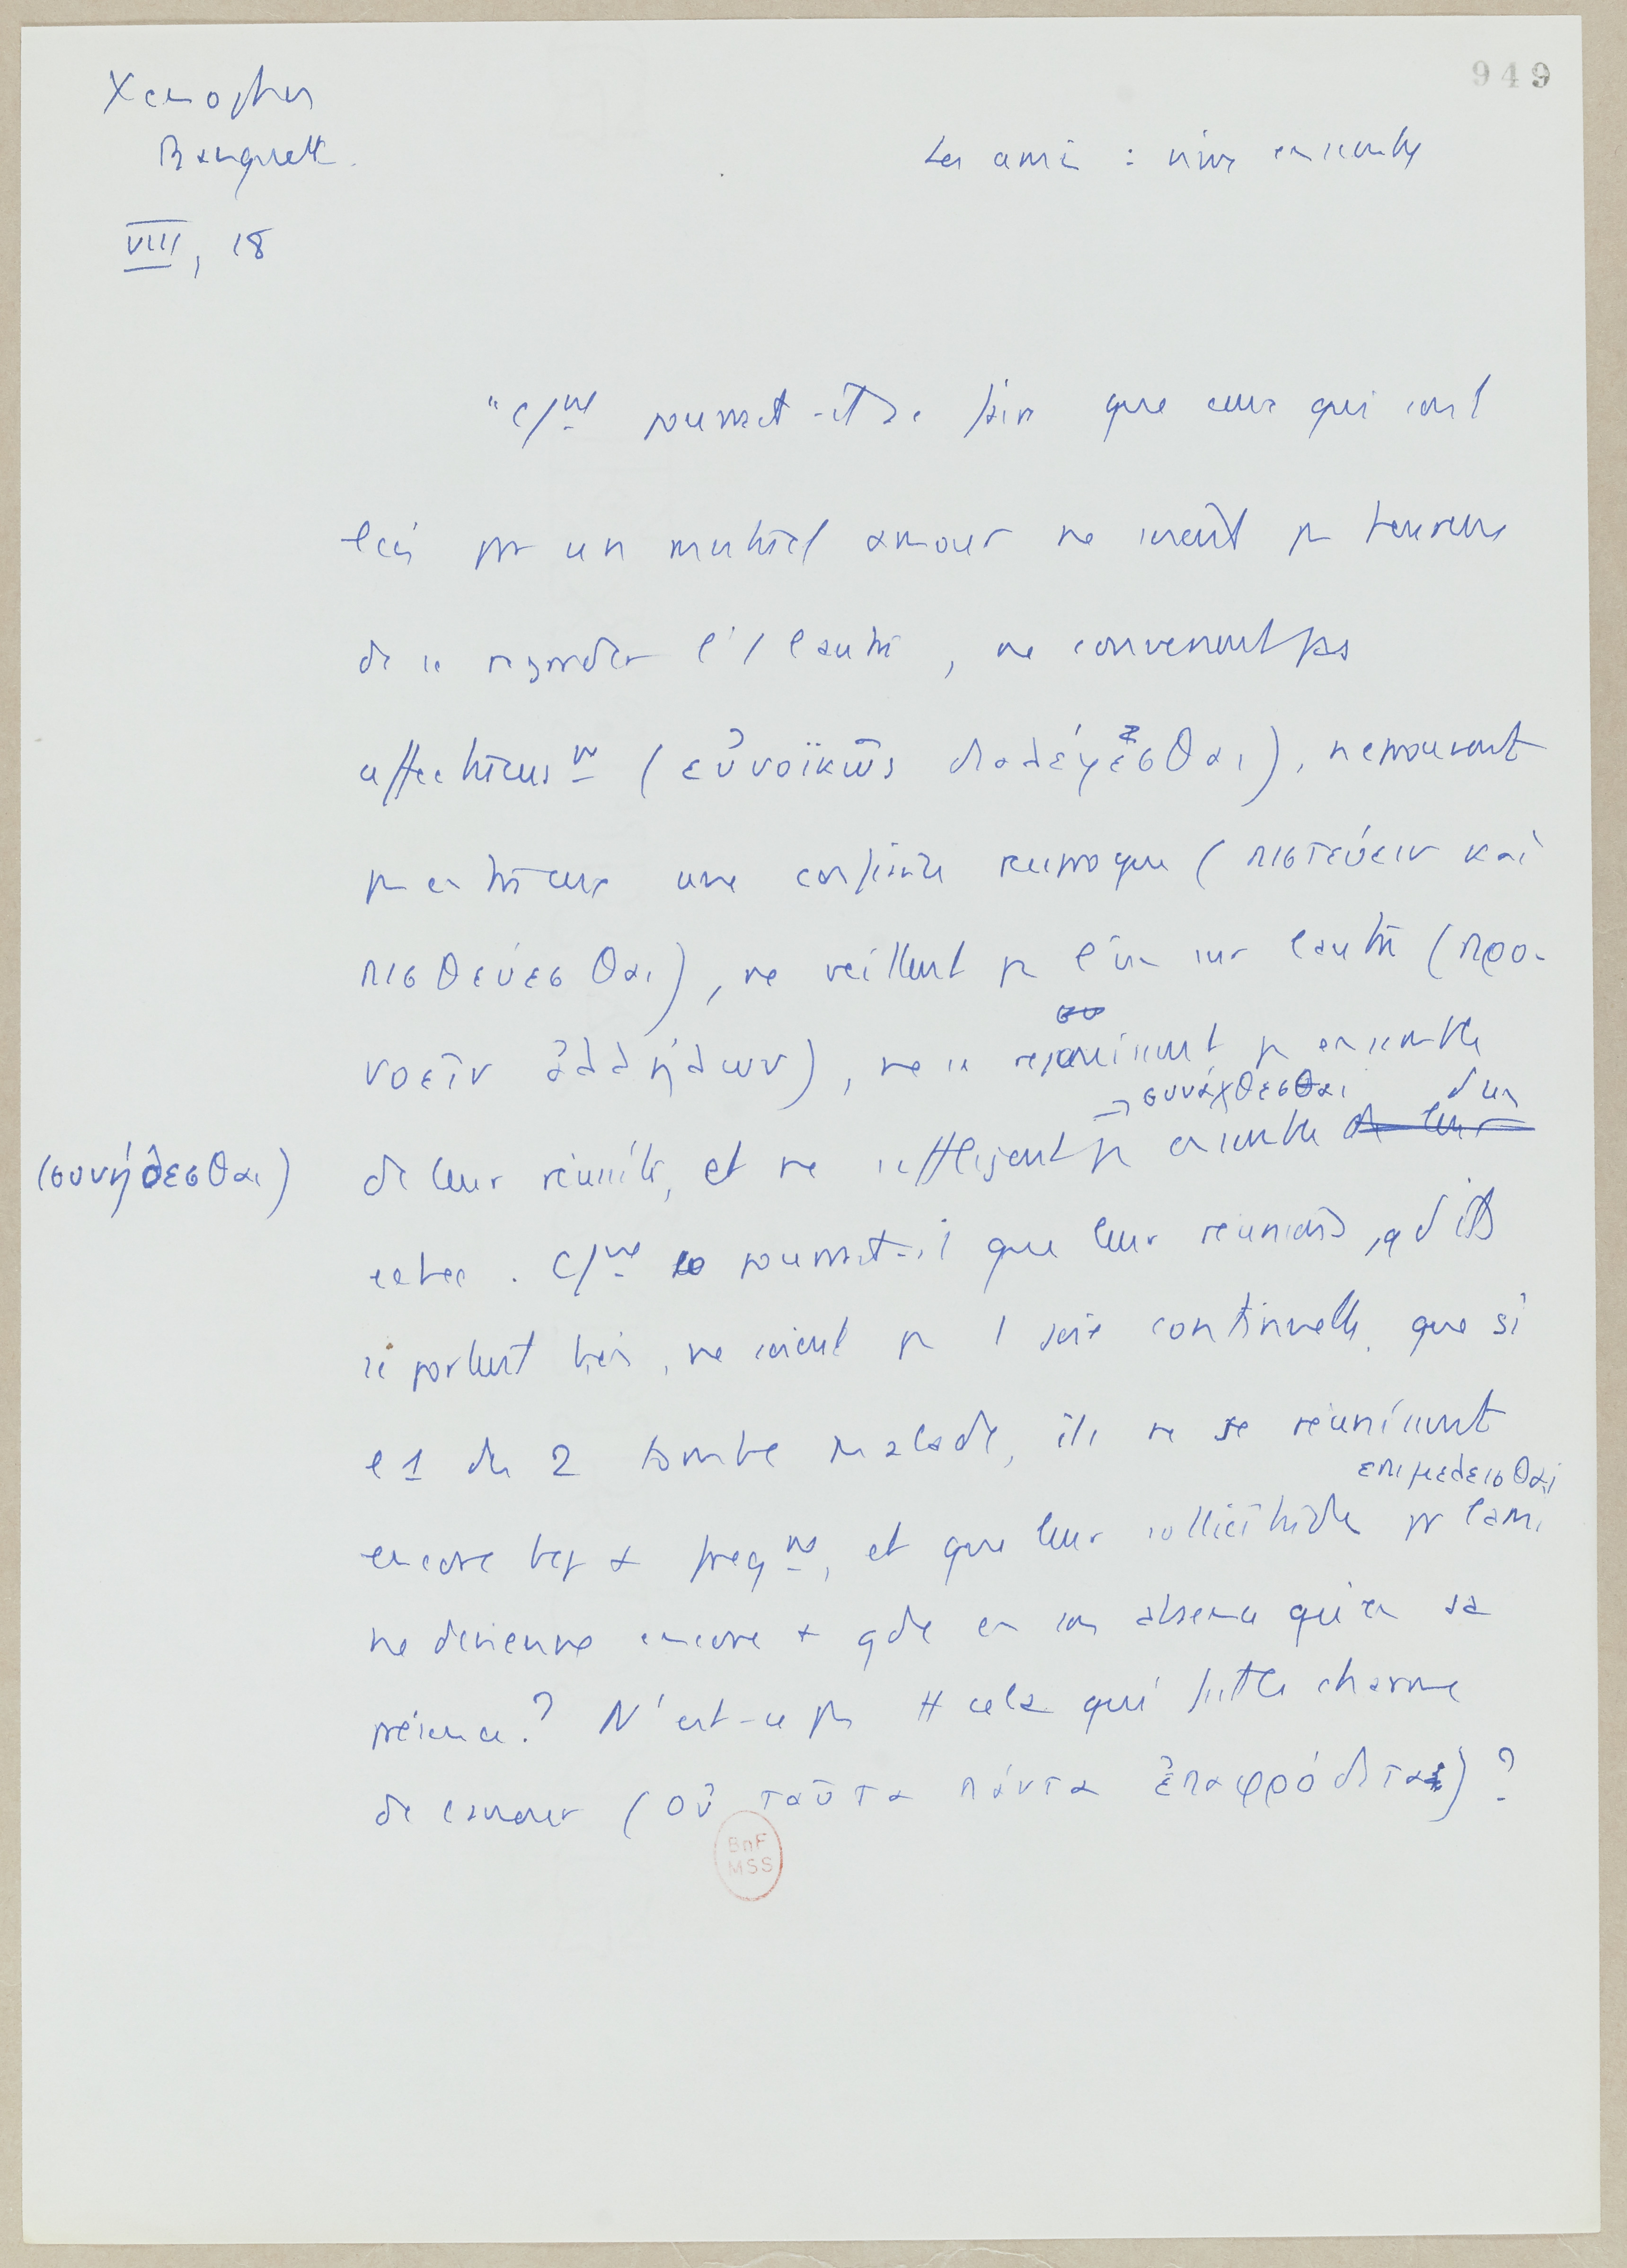 949
Xenophon
Banquet.
Les amis : vivre ensemble
VIII, 18
"Cment pourrait-il se faire que ceux qui sont
liés par un mutuel amour ne soient pas heureux
de se regarder l'1 l'autre, ne conversent pas
affectueusmt (εὐνοϊκῶς διαλέγεσθαι), n'éprouvent
pas entre eux une confiance réciproque (πιστεύειν καὶ
πισθεύεσθαι), ne veillent pas l'un sur l'autre (προ-
νοεῖν ἀλλήλων), ne se réjouissent pas ensemble
→ συνάχθεσθαι d'un
(συνήδεσθαι) de leur réussite, et ne s'affligent pas ensemble de leur
echec. Cment pourrait-il que leur reunions, qd ils
se portent bien, ne soient pas 1 joie continuelle, que si
l'1 des 2 tombe malade, ils ne se réunissent
επιμελεισθαι
encore bcp + freqmt, et que leur sollicitude pr l'ami
ne devienne encore + gde en son absence qu'en sa
présence? N'est-ce pas tt cela qui fait le charme
de l'amour (οὐ ταῦτα πάντα ἐπαφρόδιτα)?
BnF
MSS